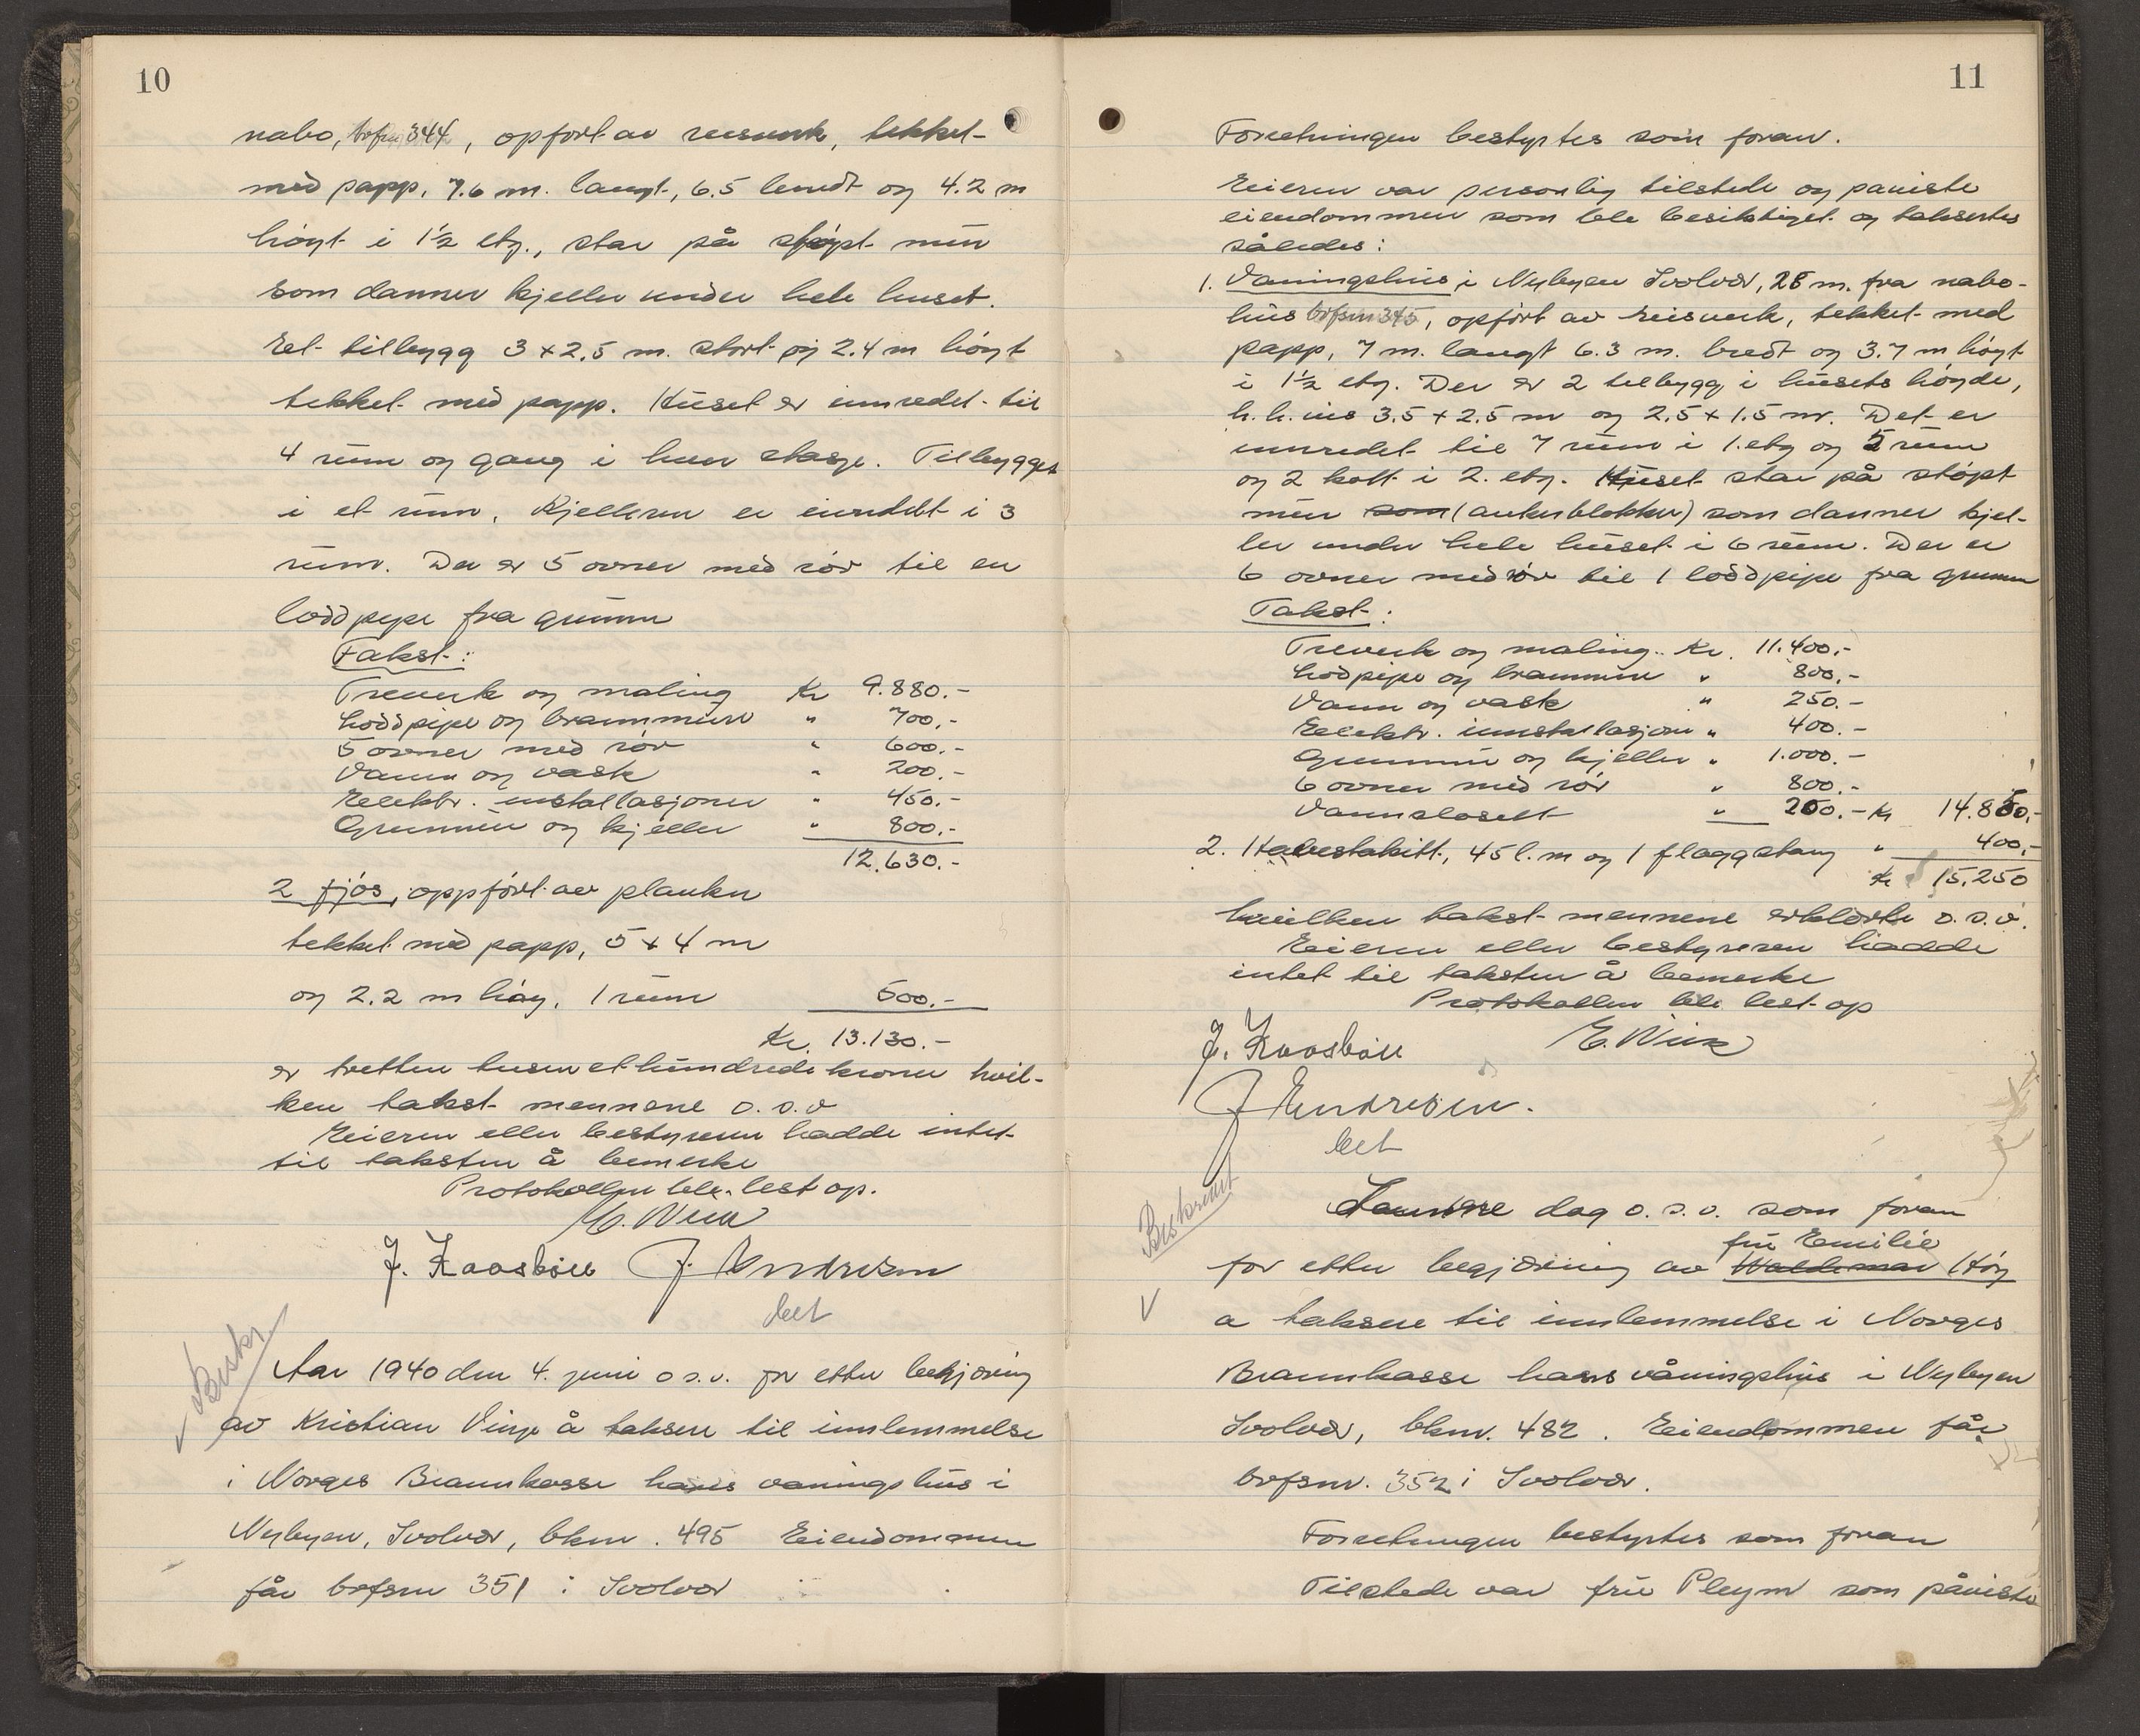 10
nabo, brfsnr 344, opført av reisverk, tekket
med papp, 7.6 m. langt, 6.5 bredt og 4.2 m
høyt i 1½ etg., står på støpt mur
som danner kjeller under hele huset.
Eet tilbygg 3 x 2,5 m. stort og 2.4 m høyt
tekket med papp. Huset er innredet til
4 rum og gang i hver etasje. Tilbygget
i et rum. Kjelleren er inndelt i 3
rum. Der er 5 ovner med rør til en
loddpipe fra grunnen
Takst:
Treverk og maling Kr 9.880.-
Loddpipe og brannmurer " 700.-
5 ovner med rør " 600.-
Vann og vask " 200.-
Elektr. installasjoner " 450.-
Grunnmur og kjeller " 800.-
12.630.-
2 fjøs, oppført av planker
tekket med papp, 5 x 4 m
og 2.2 m høy. 1 rum 500.-
Kr. 13.130.-
er tretten tusen et hundrede kroner hvil-
ken takst mennene o.s.v
Eieren eller bestyreren hadde intet
til taksten å bemerke
Protokollen ble lest op.
E. Wiik
J. Kaasbøll J. Endresen
bet
Beskr
Aar 1940 den 4. juni o s.v. for etter begjæring
av Kristian Vinje å taksere til innlemmelse
i Norges Brannkasse hans vaningshus i
Nybyen, Svolvær, bknr. 495 Eiendommen
får brfsnr 351 i Svolvær
11
Forretningen bestyrtes som foran.
Eieren var personlig tilstede og påviste
eiendommen som ble besiktiget og taksertes
således:
1. Vaningshus i Nybyen Svolvær, 28 m. fra nabo-
hus brfsnr 345, opført av reisverk, tekket med
papp, 7 m. langt 6.3 m. bredt og 3.7 m høyt
i 1½ etg. Der er 2 tilbygg i husets høyde,
h.h.vis 3.5 x 2.5 m og 2.5 x 1.5 m. Det er
innredet til 7 rum i 1. etg og 5 rum
og 2 kott i 2. etg. Huset står på støpt
mur som (ankerblokker) som danner kjel-
ler under hele huset i 6 rum. Der er
6 ovner med rør til 1 loddpipe fra grunnen
Takst:
Treverk og maling .. Kr. 11.400.-
Lodpipe og brannmur " 800.-
Vann og vask " 250.-
Elektr. innstallasjon " 400.-
Grunnmur og kjeller " 1.000.-
6 ovner med rør " 800.-
Vannklosett " 200.- Kr 14.850.-
2. Havestakitt, 45 l. m og 1 flaggstang " 400.-
Kr 15.250
hvilken takst mennene erklærte o.s.v.
Eieren eller bestyreren hadde
intet til taksten å bemerke
Protokollen ble lest op
J. Kaasbøll E. Wiik
J Endresen.
bet
Beskrevet
Samme dag o.s.v. som foran
fru Emilie
for etter begjæring av Waldemar Høy
a taksere til innlemmelse i Norges
Brannkasse hans våningshus i Nybyen
Svolvær, bknr. 482. Eiendommen får
brfsnr. 352 i Svolvær.
Forretningen bestyrtes som foran
Tilstede var fru Pleym som påviste